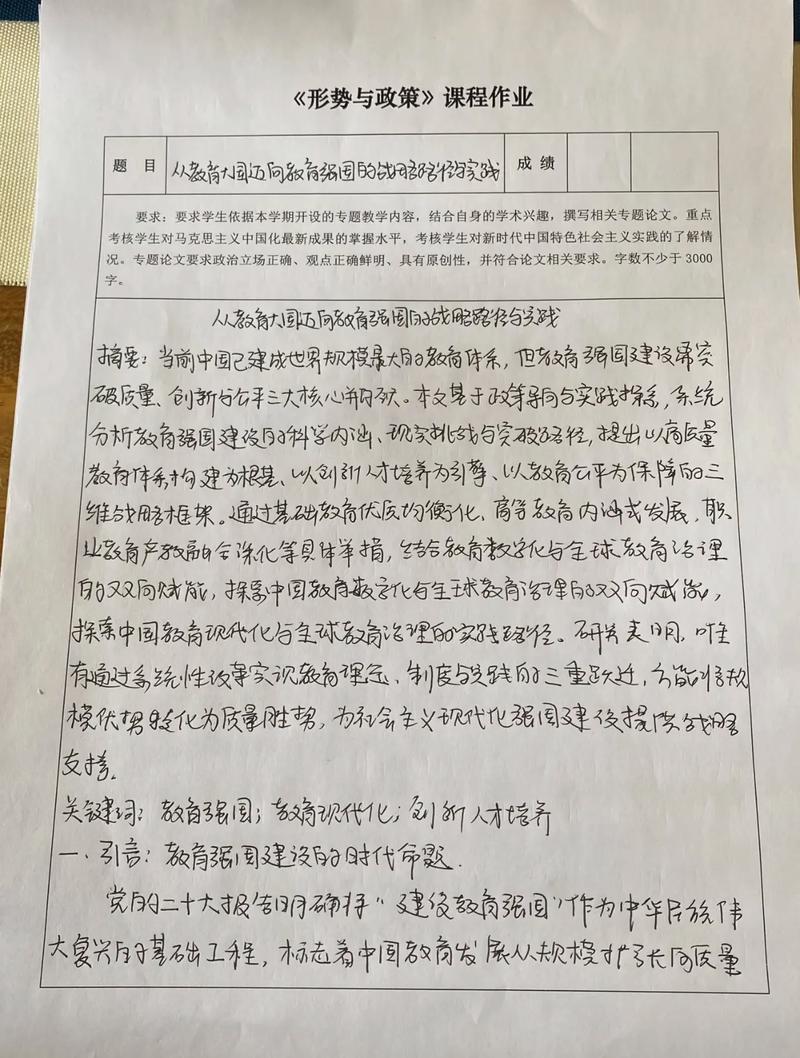 《形势与政策》课程作业
题 目 从教育大国迈向教育强国的战略路径与实践 成 绩
要求：要求学生依据本学期开设的专题教学内容，结合自身的学术兴趣，撰写相关专题论文。重点
考核学生对马克思主义中国化最新成果的掌握水平，考核学生对新时代中国特色社会主义实践的了解情
况。专题论文要求政治立场正确、观点正确鲜明、具有原创性，并符合论文相关要求。字数不少于 3000
字。
从教育大国迈向教育强国的战略路径与实践
摘要：当前中国已建成世界规模最大的教育体系，但教育强国建设需突
破质量、创新与公平三大核心瓶颈。本文基于政策导向与实践探索，系统
分析教育强国建设的科学内涵、现实挑战与突破路径，提出以高质量
教育体系构建为根基、以创新人才培养为引擎、以教育公平为保障的三
维战略框架。通过基础教育优质均衡化、高等教育内涵式发展，职
业教育产教融合深化等具体举措，结合教育数字化与全球教育治理
的双向赋能，探索中国教育数字化与全球教育治理的双向赋能，
探索中国教育现代化与全球教育治理的实践路径。研究表明，唯
有通过系统性改革实现教育理念、制度与实践的三重跃迁，方能将规
模优势转化为质量胜势，为社会主义现代化强国建设提供战略
支撑。
关键词：教育强国；教育现代化；创新人才培养
一、引言：教育强国建设的时代命题.
党的二十大报告明确将“建设教育强国”作为中华民族伟
大复兴的基础工程，标志着中国教育发展从规模扩张向质量